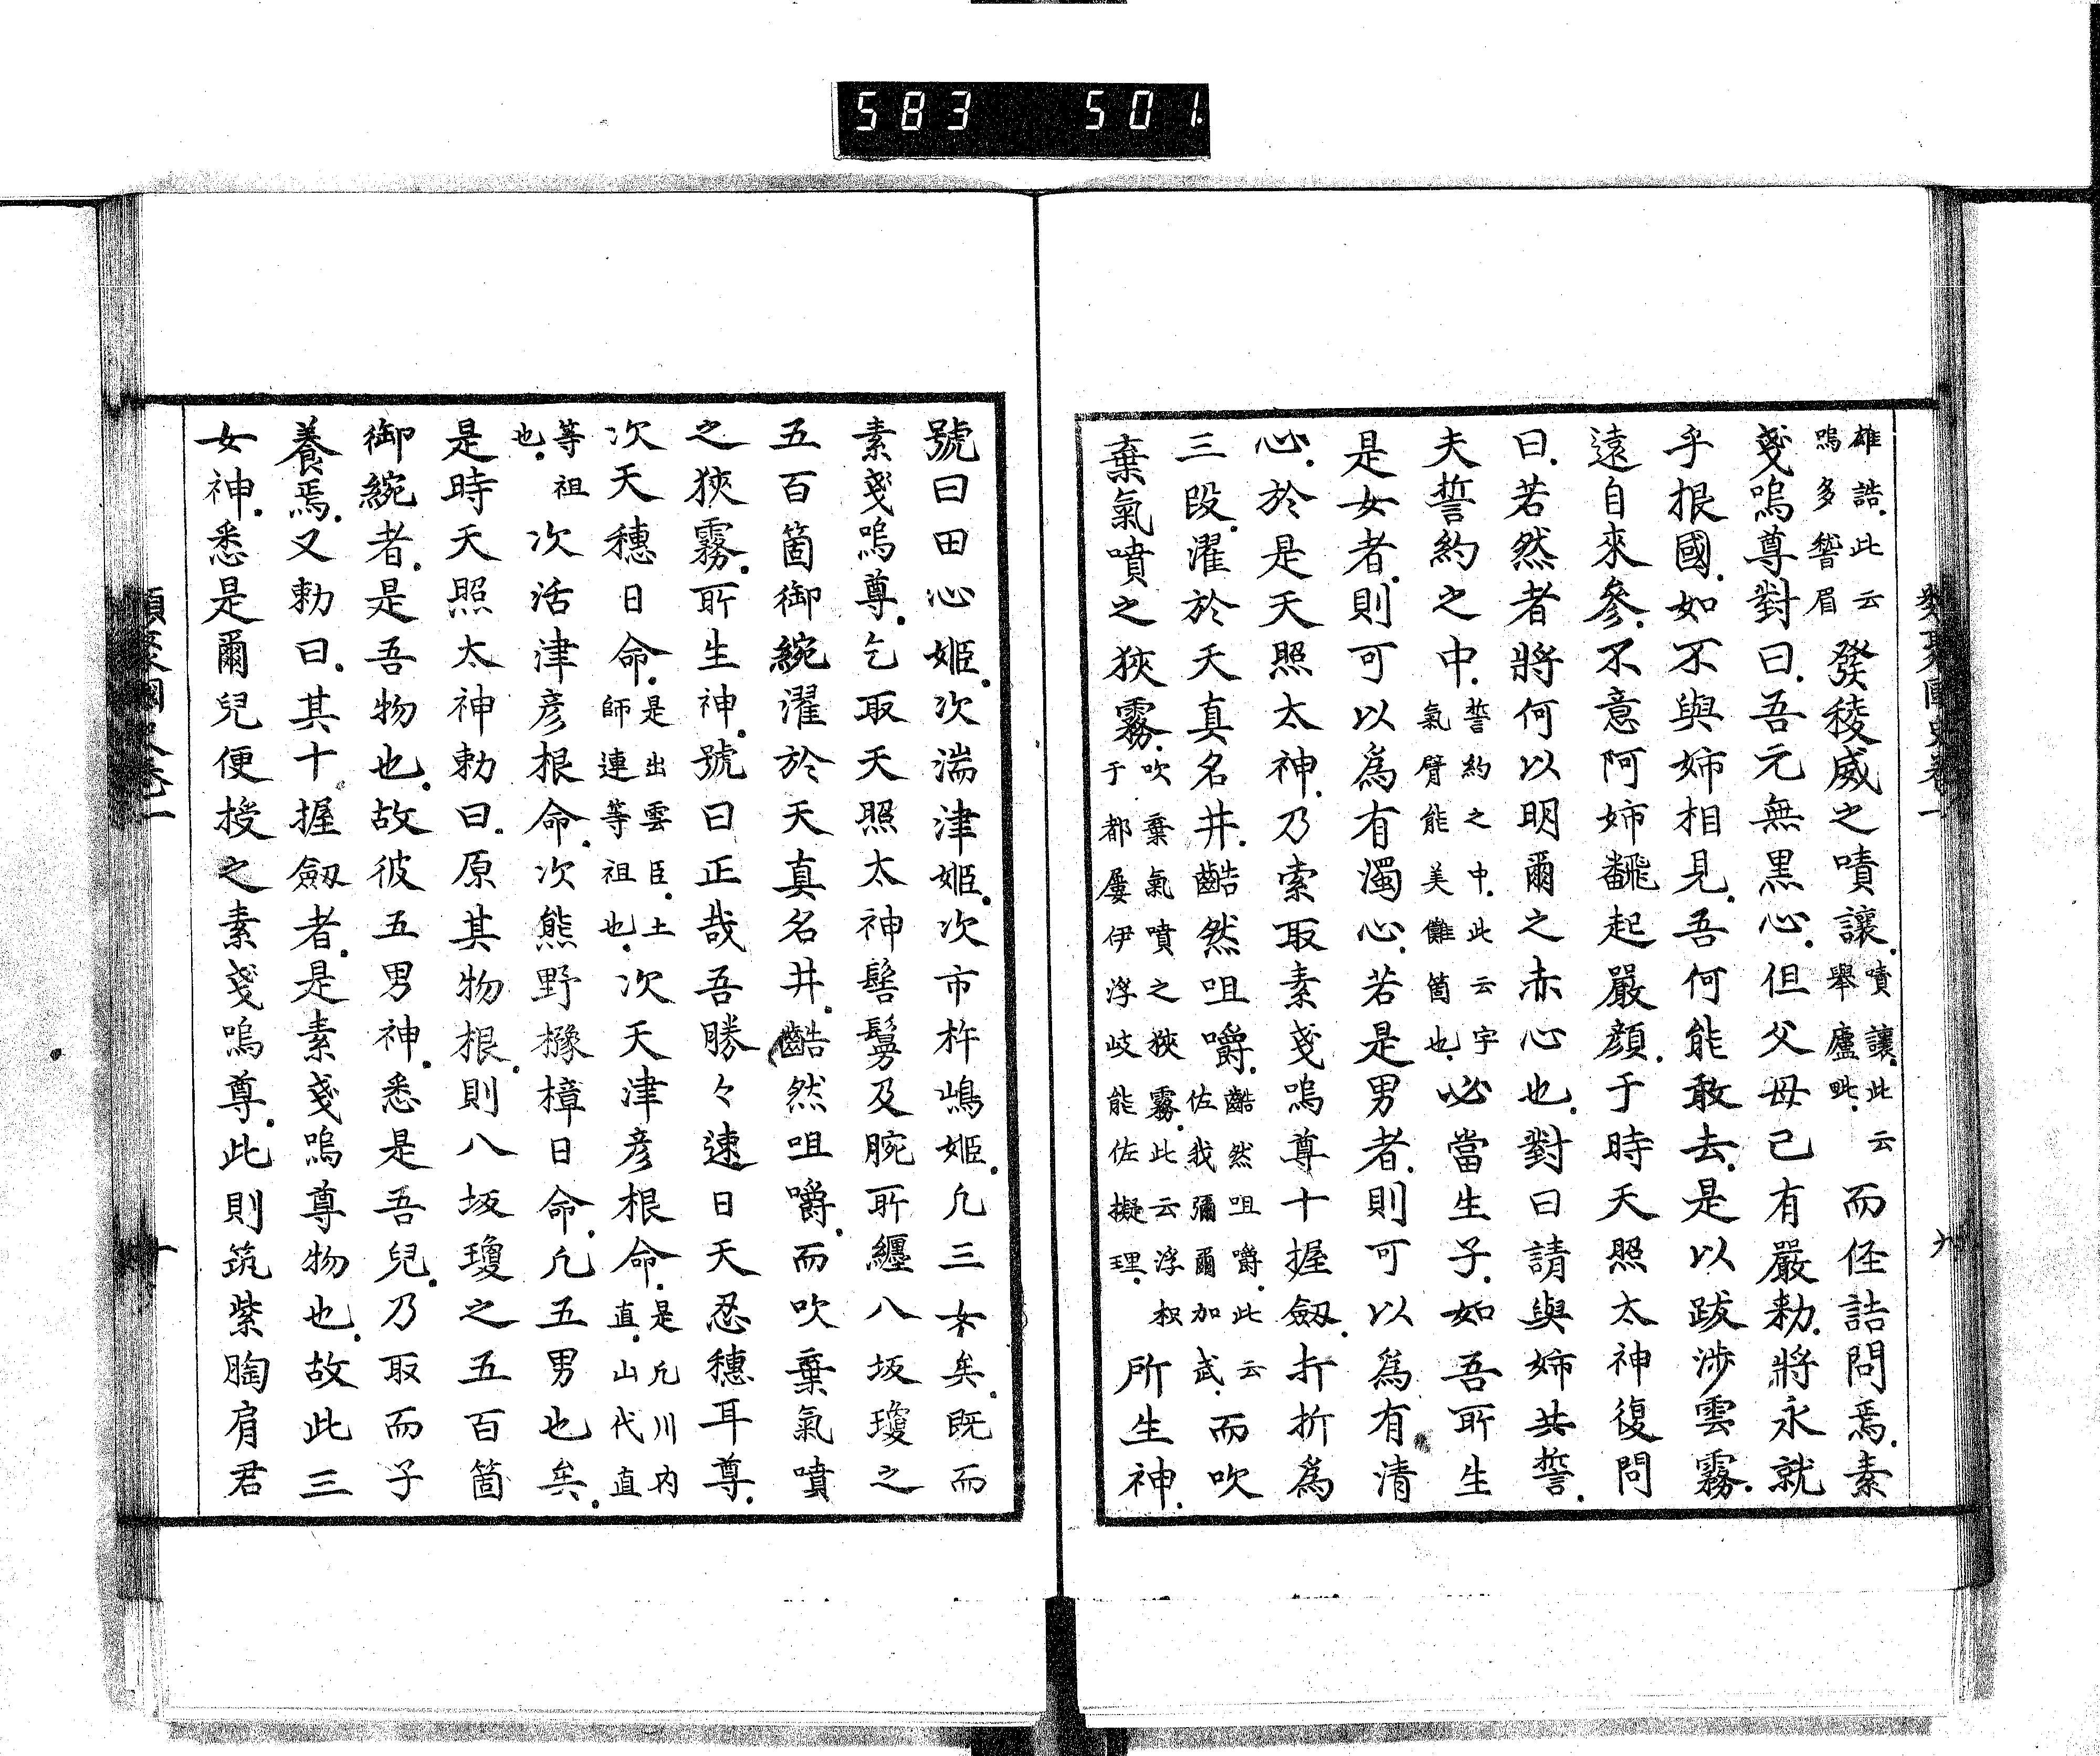 583 501.
類聚國史卷一 九
雄誥.此云
嗚多鶏眉
發稜威之嘖讓.
嘖讓.此云
舉廬毗.
而径詰問焉.素
戔嗚尊對曰.吾元無黒心.但父母已有嚴勅.將永就
乎根國.如不與姉相見.吾何能敢去.是以跋渉雲霧.
遠自來參.不意阿姉飜起嚴顔.于時天照太神復問
曰.若然者將何以明爾之赤心也.對曰請與姉共誓.
夫誓約之中.
誓約之中.此云宇
氣臂能美儺箇也.
必當生子.如吾所生
是女者.則可以為有濁心.若是男者.則可以為有清
心.於是天照太神.乃索取素戔嗚尊十握劔.打折為
三段.濯於天真名井.齰然咀嚼.
齰然咀嚼.此云
佐我彌爾加武.
而吹
棄氣噴之狹霧.
吹棄氣噴之狹霧.此云浮枳
于都屢伊浮岐能佐擬理.
所生神.
號曰田心姫.次湍津姫.次市杵嶋姫.凡三女矣.既而
素戔嗚尊.乞取天照太神髻鬘及腕所纒八坂瓊之
五百箇御綩濯於天真名井.齰然咀嚼.而吹棄氣噴
之狹霧.所生神.號曰正哉吾勝々速日天忍穗耳尊.
次天穗日命.
是出雲臣.土
師連等祖也.
次天津彦根命.
是凡川内
直.山代直
等祖
也.
次活津彦根命.次熊野櫲樟日命.凡五男也矣.
是時天照太神勅曰.原其物根.則八坂瓊之五百箇
御綩者.是吾物也.故彼五男神.悉是吾兒.乃取而子
養焉.又勅曰.其十握劔者.是素戔嗚尊物也.故此三
女神.悉是爾兒便授之素戔嗚尊.此則筑紫胸肩君
類聚國史卷一 十